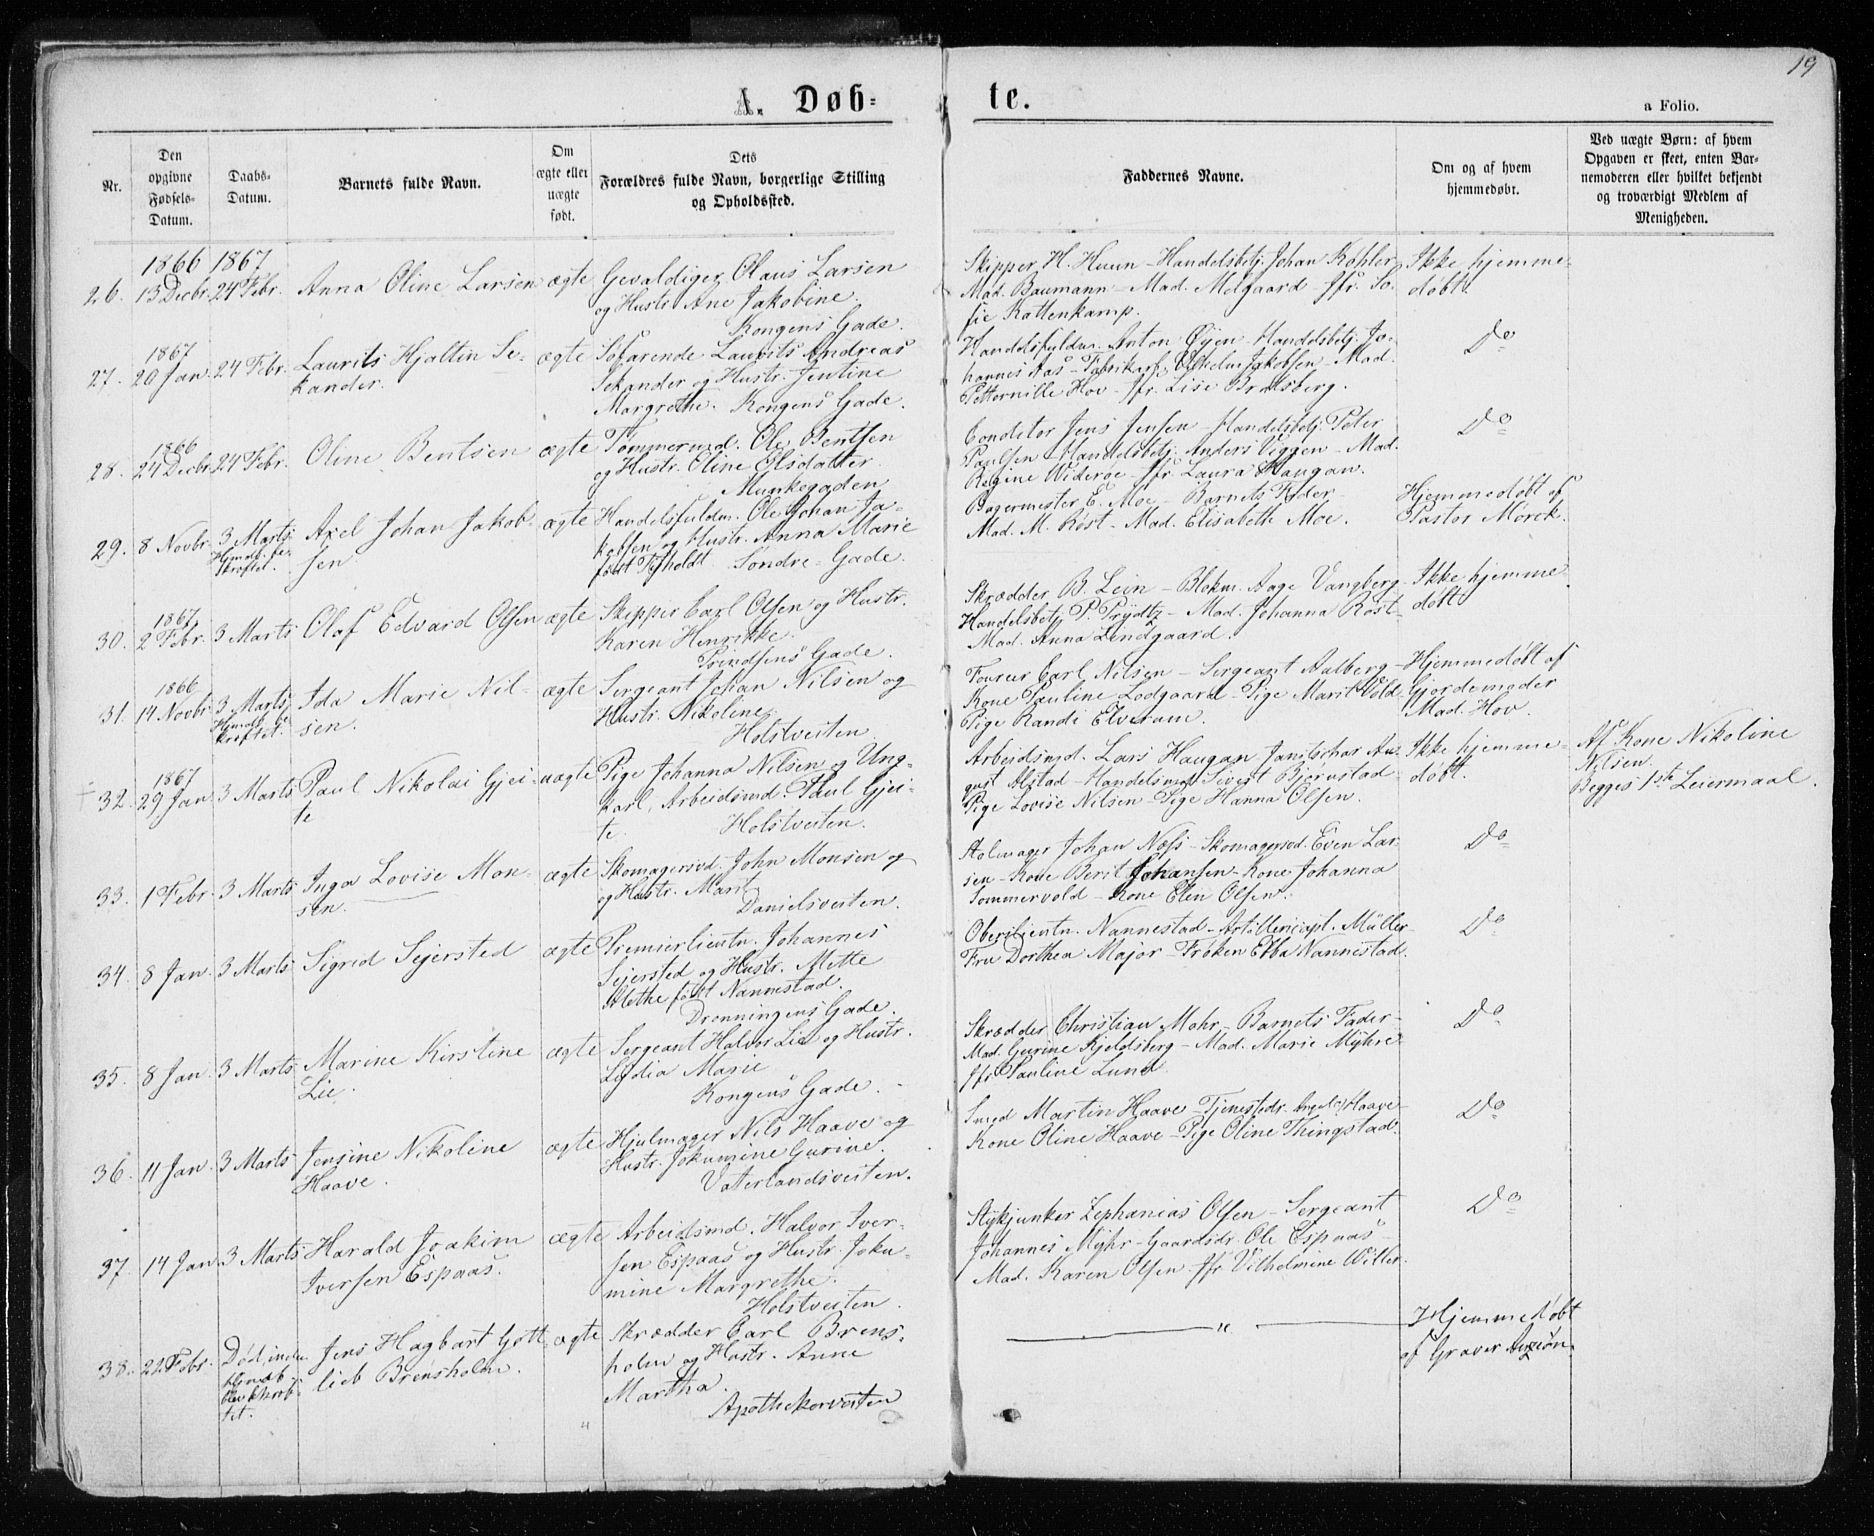 19
A. Døb-te.
a Folio.
Nr.
Den opgivne Fødsels-Datum.
Daabs-Datum.
Barnets fulde Navn.
Om ægte eller uægte født.
Dets Forældres fulde Navn, borgerlige Stilling og Opholdssted.
Faddernes Navne.
Om og af hvem hjemmedøbt.
Ved uægte Børn: af hvem Opgaven er skeet, enten Barnemoderen eller hvilket bekjendt og troværdigt Medlem af Menigheden.
1866 1867
26. 13 Decbr. 24 Febr. Anna Oline Larsen ægte Gevaldiger Olaus Larsen
og Hustr. Ane Jakobine.
Kongens Gade.
Skipper H. Huun - Handelsbetj. Johan Köhler
Mad. Baumann - Mad. Melgaard - Jfr. So-
fie Kattenkamp.
Ikke hjemme-
døbt.
1867
27. 20 Jan. 24 Febr. Laurits Hjaltin Se-
kander.
ægte Søfarende Laurits Andreas
Sekander og Hustr. Jentine
Margrethe. Kongens Gade.
Handelsfuldm. Anton Øyen - Handelsbetj. Jo-
hannes Aas - Jakobsen - Mad.
Petternille Hov - Jfr. Lise Bratsberg.
Do
1866
28. 24 Decbr. 24 Febr. Oline Bentsen ægte Tømmermd. Ole Bentsen
og Hustr. Oline Olsdatter.
Munkegaden
Conditor Jens Jensen - Handelsbetj. Peter
Paulsen - Handelsbetj. Anders Viggen - Mad.
Regine Widerøe - Jfr. Laura Haugan.
Do
29. 8 Novbr. 3 Marts
Hjmdb. be-
kræftet.
Axel Johan Jakob-
sen
ægte Handelsfuldm. Ole Johan Ja-
kobsen og Hustr. Anna Marie
født Søndre-Gade.
Bagermester E. Moe - Barnets Fader -
Mad. M. Röst - Mad. Elisabeth Moe.
Hjemmedøbt af
Pastor Mörck.
1867
30. 2 Febr. 3 Marts Olaf Edvard Olsen ægte Skipper Carl Olsen og Hustr.
Karen Henrikke.
Prindsens Gade.
Skrædder B. Lein - Blokm. Aage Vangberg
Handelsbetj. P. Prydtz - Mad. Johanna Röst -
Mad. Anna Lendgaard.
Ikke hjemme-
døbt.
1866
31. 14 Novbr. 3 Marts
Hjmdb. be-
kræftet.
Ida Marie Nil-
sen.
ægte Sergeant Johan Nilsen og
Hustr. Nikoline.
Holstveiten
Fourer Carl Nilsen - Sergeant Aalberg -
Kone Pauline Lodgaard - Pige Marit Vold
Pige Randi Elveram.
Hjemmedøbt af
Gjordemoder
Mad. Hov.
1867
32. 29 Jan. 3 Marts Paul Nikolai Gjei-
te
uægte Pige Johanna Nilsen og Ung-
karl, Arbeidsmd. Paul Gjei-
te. Holstveiten.
Arbeidsmd. Lars Haugan Janitschar Au-
gust Alstad - Handelsmd. Sivert Bjørnstad -
Pige Lovise Nilsen - Pige Hanna Olsen.
Ikke hjemme-
døbt.
Af Kone Nikoline
Nilsen.
Begges 1ste Leiermaal.
33. 1 Febr. 3 Marts Inga Lovise Mon-
sen.
ægte Skomagersvd. John Monsen og
og Hustr. Marit
Danielsveiten.
Stolmager Johan Næss - Skomagersvd. Even Lar
sen - Kone Berit Johansen - Kone Johanna
Sommervold - Kone Elen Olsen.
Do
34. 8 Jan. 3 Marts Sigrid Sejersted ægte Premierlieutn. Johannes
Sejersted og Hustr. Mette
Alethe født Nannestad.
Dronningens Gade.
Oberstlieutn. Nannestad - Artillericapt. Müller
Fru Dorthea Major - Frøken Ebba Nannestad.
Do
35. 8 Jan. 3 Marts Marine Kirstine
Lie.
ægte Sergeant Halvor Lie og Hustr.
Lydia Marie
Kongens Gade.
Skrædder Christian Mohr - Barnets Fader -
Mad. Gurine Kjeldsberg - Mad. Marie Myhre
Jfr. Pauline Lund.
Do
36. 11 Jan. 3 Marts Jensine Nikoline
Haave.
ægte Hjulmager Nils Haave og
Hustr. Jokumine Gurine.
Vaterlandsveiten.
Smed Martin Haave - Tjenestedr. Haave -
Kone Oline Haave - Pige Oline Thingstad.
Do
37. 14 Jan. 3 Marts Harald Joakim
Iversen Espaas.
ægte Arbeidsmd. Halvor Iver-
sen Espaas og Hustr. Joku-
mine Margrethe.
Holstveiten.
Stykjunker Zephanias Olsen - Sergeant
Johannes Myhr - Gaardsdr. Ole Espaas -
Mad. Karen Olsen - Jfr. Vilhelmine Willer.
Do
38. 22 Febr. Død, inden
Jens Hagbart Gott-
lieb Brensholm.
ægte Skrædder Carl Brens-
holm og Hustr. Anne
Martha.
Apothekerveiten
"
Hjemmedøbt
af Graver